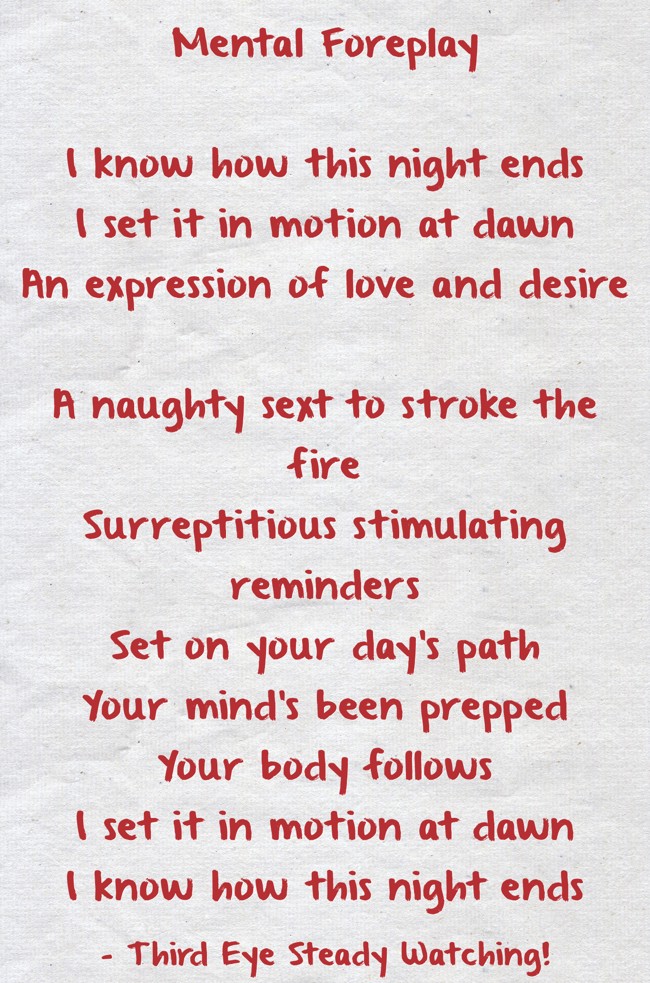 Mental Foreplay
I know how this night ends
I set it in motion at dawn
An expression of love and desire
A naughty sext to stroke the
fire
Surreptitious stimulating
reminders
Set on your day's path
Your mind's been prepped
Your body follows
I set it in motion at dawn
I know how this night ends
- Third Eye Steady Watching!